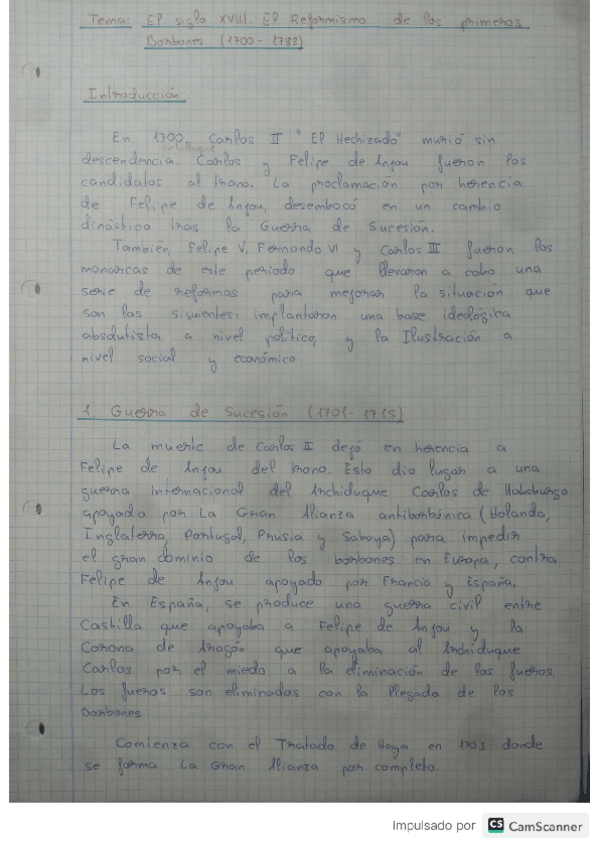 Tema: El siglo XVIII. El Reformismo de los primeros
Borbones (1700-1788)
Introducción
En 1700, Carlos II "El Hechizado" murió sin
archiduque
descendencia. Carlos y Felipe de Anjou fueron los
candidatos al trono. La proclamación por herencia
de Felipe de Anjou, desembocó en un cambio
dinástico tras la Guerra de Sucesión.
También, Felipe V, Fernando VI y Carlos III fueron los
monarcas de este periodo que llevaron a cabo una
serie de reformas para mejorar la situación que
son las siguientes: implantaron una base ideológica
absolutista a nivel político, y la Ilustración a
nivel social y económico
1. Guerra de Sucesión (1701-1715)
La muerte de Carlos II dejó en herencia a
Felipe de Anjou del trono. Esto dio lugar a una
guerra internacional del Archiduque Carlos de Habsburgo
apoyado por La Gran Alianza antiborbónica (Holanda,
Inglaterra, Portugal, Prusia y Saboya) para impedir
el gran dominio de los borbones en Europa, contra
Felipe de Anjou apoyado por Francia y España.
En España, se produce una guerra civil entre
Castilla que apoyaba a Felipe de Anjou y la
Corona de Aragón que apoyaba al Archiduque
Carlos por el miedo a la eliminación de los fueros.
Los fueros son eliminados con la llegada de los
Borbones
Comienza con el Tratado de Haya en 1703 donde
se forma La Gran Alianza por completo.
Impulsado por CS CamScanner